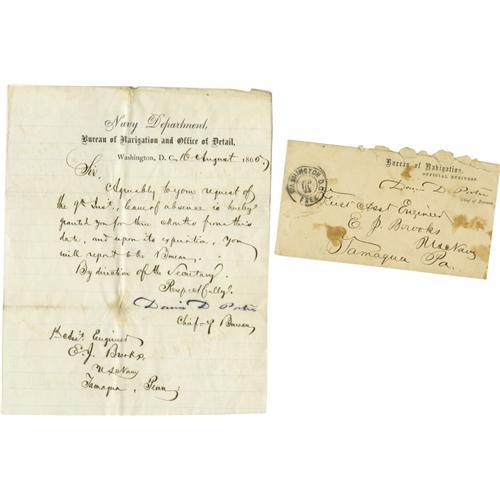 Navy Department,
Bureau of Navigation and Office of Detail,
Washington, D. C., 16 August 1865.
Sir,
Agreeably to your request of
the 9th Inst, leave of absence is hereby
granted you for three months from this
date, and upon its expiration, you
will report to the Bureau.
By direction of the Secretary.
Respectfully,
David D. Porter
Chief of Bureau,
Engineer
E. J. Brooks,
U S Navy
Tamaqua, Penn;
Bureau of Navigation,
OFFICIAL BUSINESS
David D. Porter
Chief of Bureau
WASHINGTON D.C.
FREE
First Asst Engineer
E. J. Brooks
U S Navy
Tamaqua
Pa.